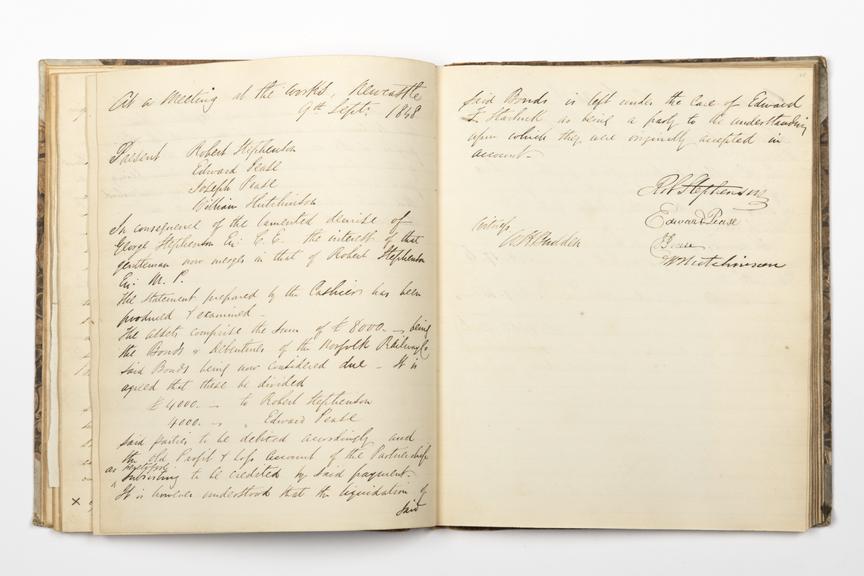 At a Meeting at the Works, Newcastle
9th Septr. 1848
Present Robert Stephenson
Edward Pease
Joseph Pease
William Hutchinson
In consequence of the lamented demise of
George Stephenson Esq C.E. the interest of that
gentleman now merges in that of Robert Stephenson
Esq M.P.
The Statement prepared by the Cashiers has been
produced & examined -
The assets comprise the Sum of £8000 - being
the Bonds & Debentures of the Norfolk Railway Co
Said Bonds being now considered due - It is
agreed that these be divided
£4000 - to Robert Stephenson
4000 - " Edward Pease
said parties to be debited accordingly and
the old Profit & Loss Account of the Partnership
as heretofore
subsisting to be credited by said payment.
It is however understood that the liquidation of
said
x
said Bonds is left under the Care of Edward
F. Starbuck as being a party to the understanding
upon which they were originally accepted in
account -
Robt Stephenson
Edward Pease
Witness
Pease
Wm Hutchinson